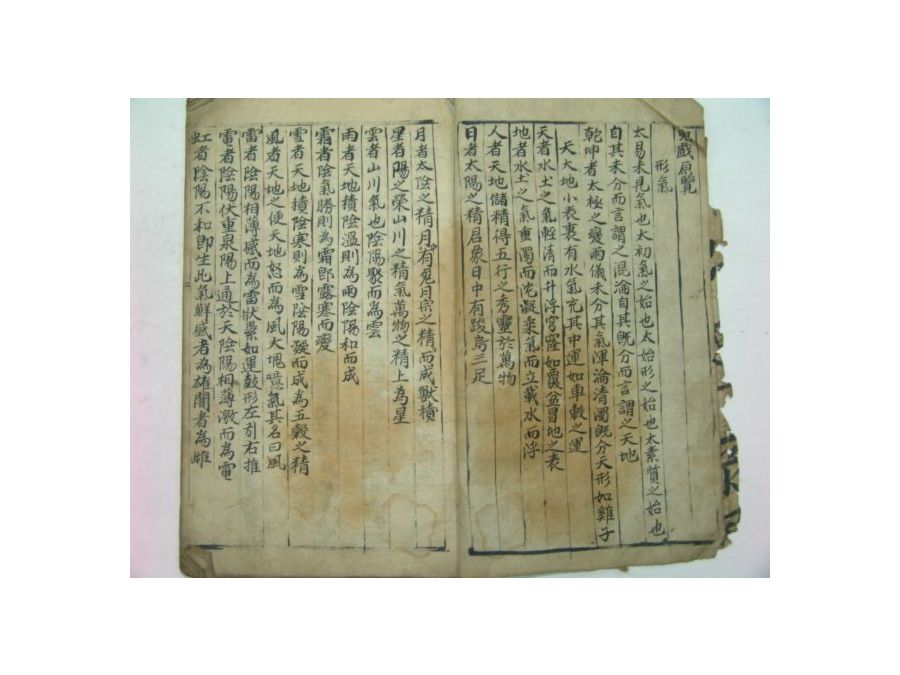 形氣
太易未見氣也太初氣之始也太始形之始也太素質之始也
自其未分而言謂之混淪自其旣分而言謂之天地
乾坤者太極之變兩儀未分其氣渾淪清濁旣分天形如雞子
天大地小表裏有水氣充其中運如車轂之運
天者水土之氣輕清而升浮穹窿如覆盆冒地之表
地者水土之氣重濁而沱凝乘氣而立載水而浮
人者天地儲精得五行之秀靈於萬物
日者太陽之精君象日中有踆烏三足
月者太陰之精月有兔月宗之精而成獸積
星者陽之榮山川之精氣萬物之精上為星
雲者山川氣也陰陽聚而為雲
雨者天地積陰温則為雨陰陽和而成
霜者陰氣勝則為霜卽露寒而變
雪者天地積陰寒則為雪陰陽凝而成為五穀之精
風者天地之使天地怒而為風大塊噫氣其名曰風
雷者陰陽相薄感而為雷狀纍如運鼓形左引右推
電者陰陽伏重泉陽上通於天陰陽相薄激而為電
虹者陰陽不和卽生此氣鮮盛者為雄闇者為雌